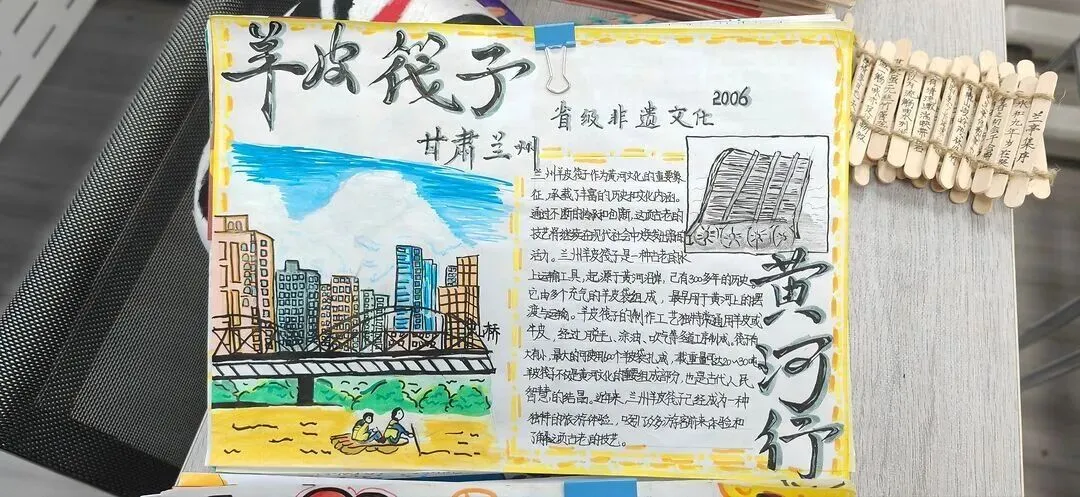 羊皮筏子
省级非遗文化
2006
甘肃兰州
兰州羊皮筏子作为黄河文化的重要象
征,承载了丰富的历史和文化内涵。
通过不断的传承和创新,这项古老的
技艺将继续在现代社会中焕发出新的
活力。兰州羊皮筏子是一种古老的水
上运输工具,起源于黄河沿岸,已有300多年的历史。
它由多个充气的羊皮袋组成,最早用于黄河上的摆
渡与运输。羊皮筏子的制作工艺独特,常选用羊皮或
牛皮,经过脱毛、涂油、吹气等多道工序制成,筏有
大有小,最大的可使用600个羊皮袋扎成,载重量可达20~30吨
羊皮筏子不仅是黄河文化的重要组成部分,也是古代人民
智慧的结晶。近年来,兰州羊皮筏子已经成为一种
独特的旅游体验,吸引了众多游客前来体验和
了解这项古老的技艺。
桥
黄河行
兰亭集序